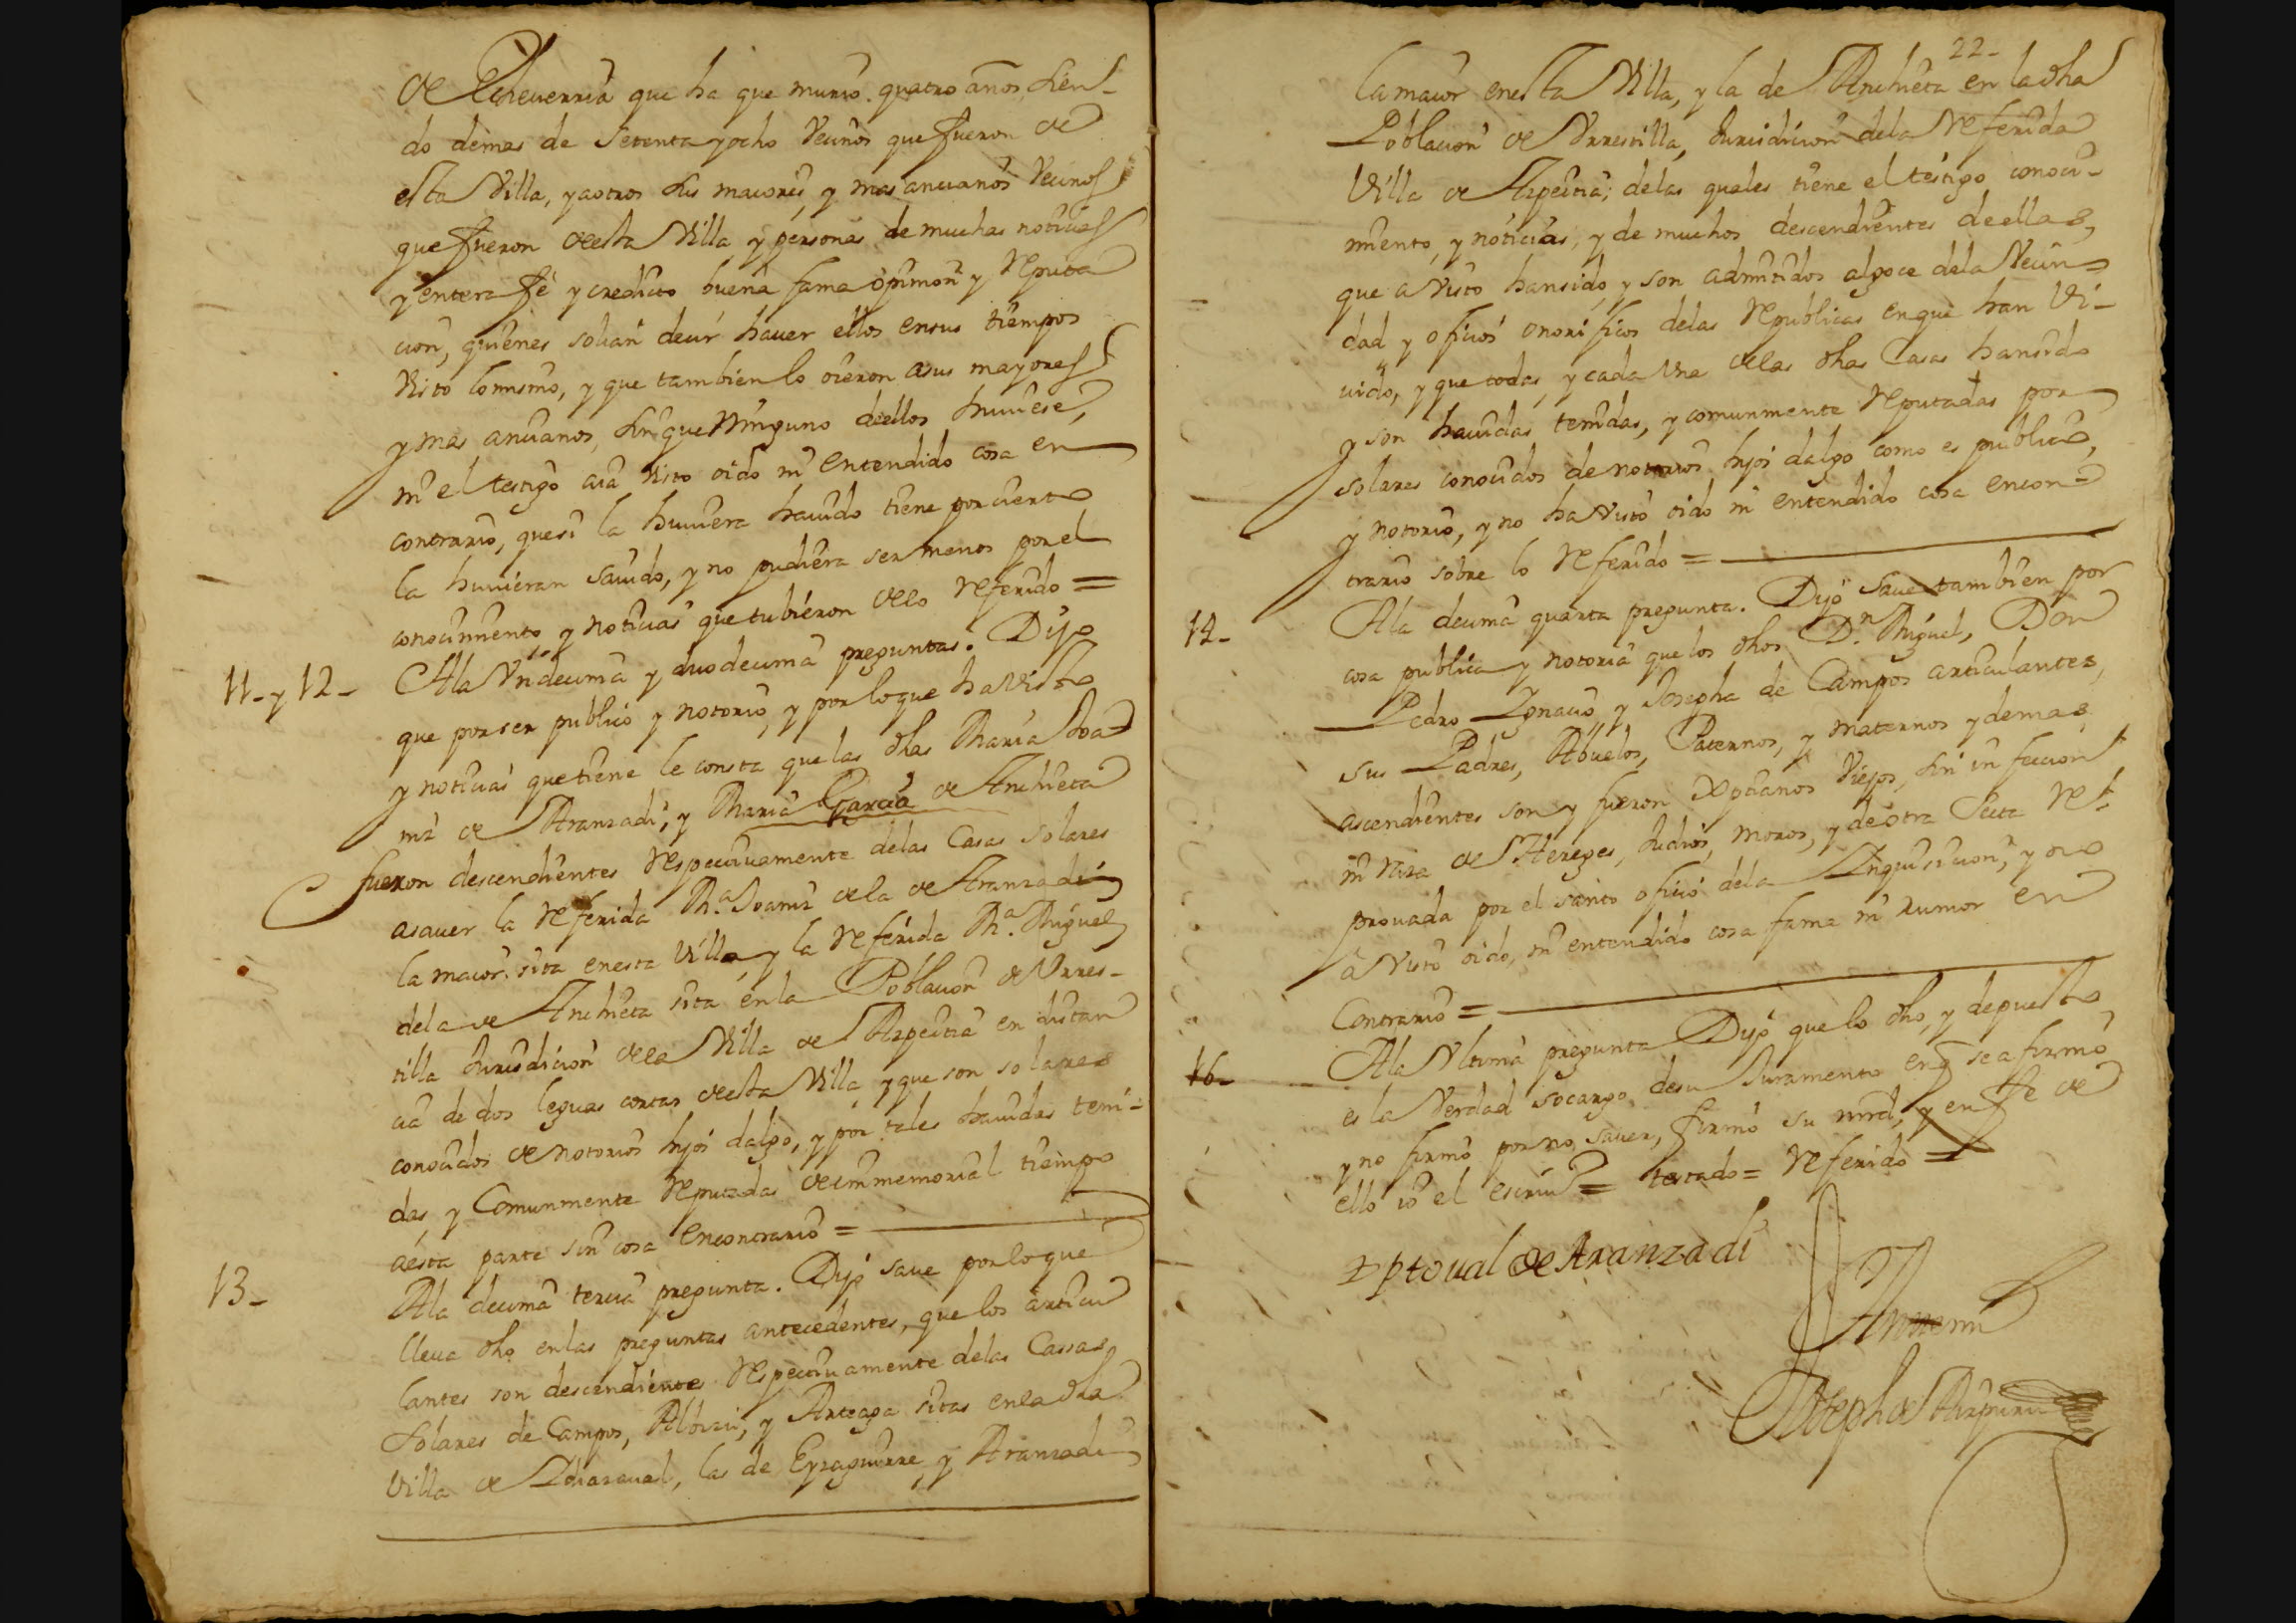 de Echeuerria que ha que murio quatro años, sien-
do demas de Setenta y ocho Vecinos que fueron de
esta Villa, y a otros sus maiores, y mas ancianos Vecinos
que fueron desta Villa, y personas de muchas noticias
y entera fè y credicto buena fama opinion y Reputa
cion, quienes solian decir hauer ellos en sus tiempos
Visto lo mismo, y que tambien lo oieron a sus mayores
y mas ancianos, sin que Ninguno dellos huuiese,
ni el testigo aia Visto oido ni entendido cosa en
contrario, que si la huuiera hauido tiene por cierto
la huuieran sauido, y no pudiera ser menos por el
conocimiento y noticias que tubieron de lo Referido =
11- y 12-
A la Vndecima y duodecima preguntas. Dijo
que por ser publico y notorio, y por lo que ha Visto
y noticias que tiene le consta que las dhas Maria Joa
niz de Aranzadi, y Maria Garcia de Anchieta
fueron descendientes Respectiuamente de las Casas Solares
asauer la Referida Mª Joaniz de la de Aranzadi
la maior sita en esta Villa, y la Referida Mª Miguel
de la de Anchieta sita en la Poblacion de Vrres-
tilla Jurisdicion de la Villa de Azpeitia en distan
cia de dos leguas cortas desta Villa, y que son solares
conocidos de notorios hijos dalgo, y por tales hauidas teni-
das, y Comunmente Reputadas de immemorial tiempo
a esta parte sin cosa en contrario =
13-
A la decima tercia pregunta. Dijo saue por lo que
lleua dho en las preguntas antecedentes, que los articu
lantes son descendientes Respectiuamente de las Cassas
Solares de Campos, Albizu, y Arteaga sitas en la dha
Villa de Idiazaual, las de Eyzaguirre y Aranzadi
22-
la maior en esta Villa, y la de Anchieta en la dha
Poblacion de Vrrestilla, Jurisdicion de la Referida
Villa de Azpeitia; de las quales tiene el testigo conoci-
miento, y noticias, y de muchos descendientes de ellas,
que a Visto han sido, y son admitidos al goce de la Vecin
dad y oficios onorificos de las Republicas en que han Vi-
uido, y que todas, y cada Vna de las dhas Casas han sido
y son hauidas tenidas, y comunmente Reputadas por
solares conocidos de notorios hijos dalgo como es publico,
y notorio, y no ha Visto oido ni entendido cosa en con-
trario sobre lo Referido =
14-
A la decima quarta pregunta. Dijo Saue tambien por
cosa publica y notoria que los dhos Dn Miguel, Don
Pedro Ignacio, y Josepha de Campos articulantes,
sus Padres, Abuelos, Paternos, y maternos y demas
ascendientes son y fueron Xptianos Viejos, sin infeccion
ni raza de Hereges, Judios, moros, y de otra Secta Re-
prouada por el santo oficio de la Inquisicion, y no
a Visto oido, ni entendido cosa fama ni rumor en
Contrario =
16-
A la Vltima pregunta Dijo que lo dho, y depuesto,
es la Verdad socargo de su Juramento en q se afirmo
y no firmo por no sauer, firmo su mrd, y en fe de
ello io el escriu = testado = Referido =
Xptoual de Aranzadi
Ante mi
Joseph de Aizpuru